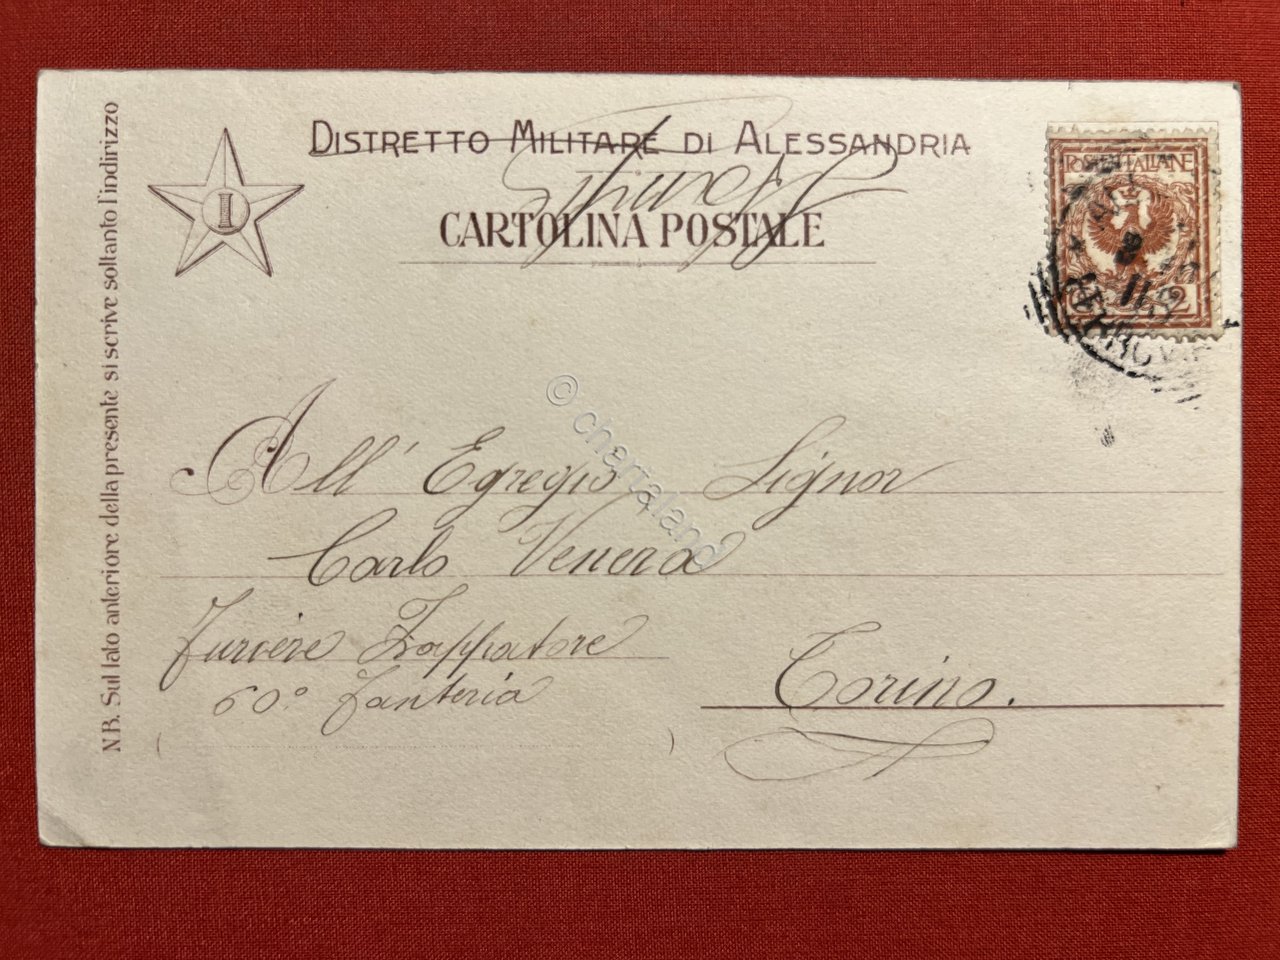 DISTRETTO MILITARE DI ALESSANDRIA
CARTOLINA POSTALE
I
N.B. Sul lato anteriore della presente si scrive soltanto l'indirizzo
POSTE ITALIANE
2
All' Egregio Signor
Carlo Venera
Furiere Zappatore
60.° Fanteria
Torino.
( )
© chartaland